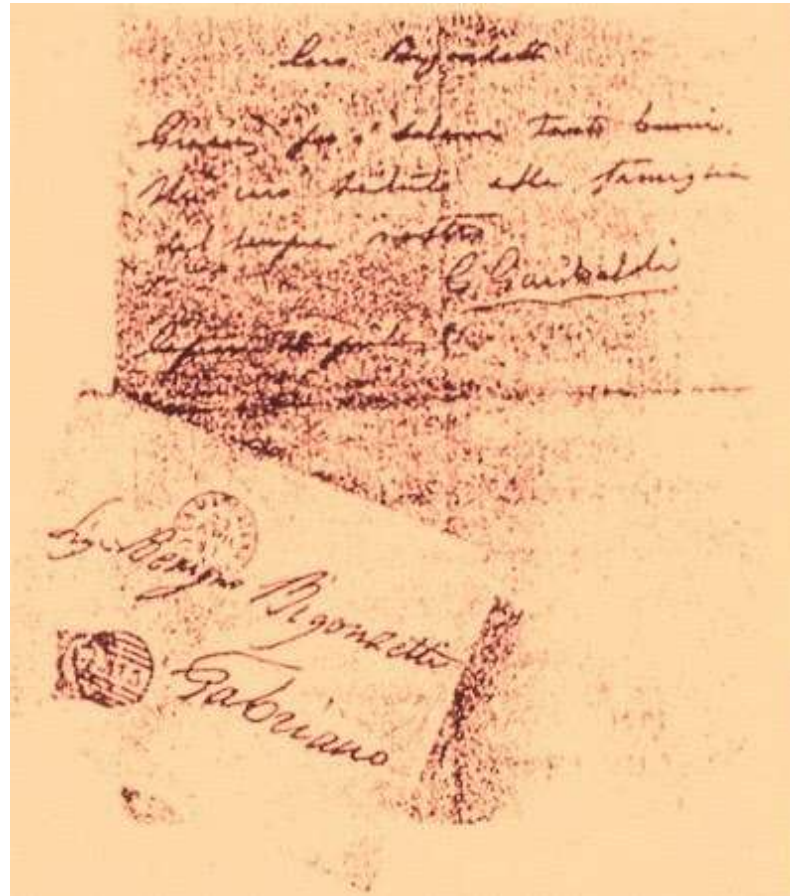 Caro Bigonzetti
Grazie per i salami tanto buoni.
Un caro saluto alla famiglia
dal sempre vostro
G. Garibaldi
Caprera
Sigr Benigno Bigonzetti
Fabriano